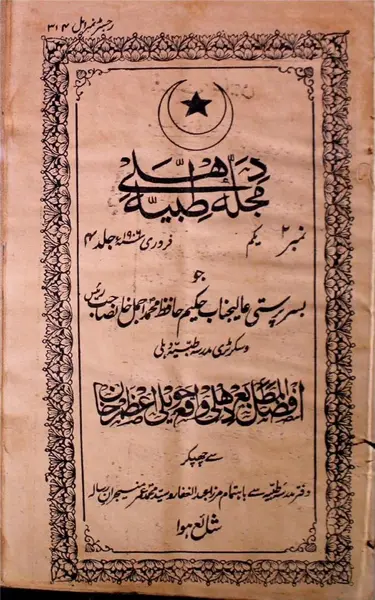 رجسٹرڈ نمبر ایل ۳۱۴
مجلہ طبیہ دہلی
نمبر ۲ یکم فروری سنہ ۱۹۰۶ء جلد ۴
جو
بسرپرستی عالیجناب حکیم حافظ محمد اجمل خان صاحب رئیس
و سکرٹری مدرسہ طبیہ دہلی
افضل المطابع دہلی واقع حویلی اعظم خان
سے چھپکر
دفتر مدرسہ طبیہ سے باہتمام مرزا عبدالغفار و سید محمد عمر منیجران رسالہ
شائع ہوا